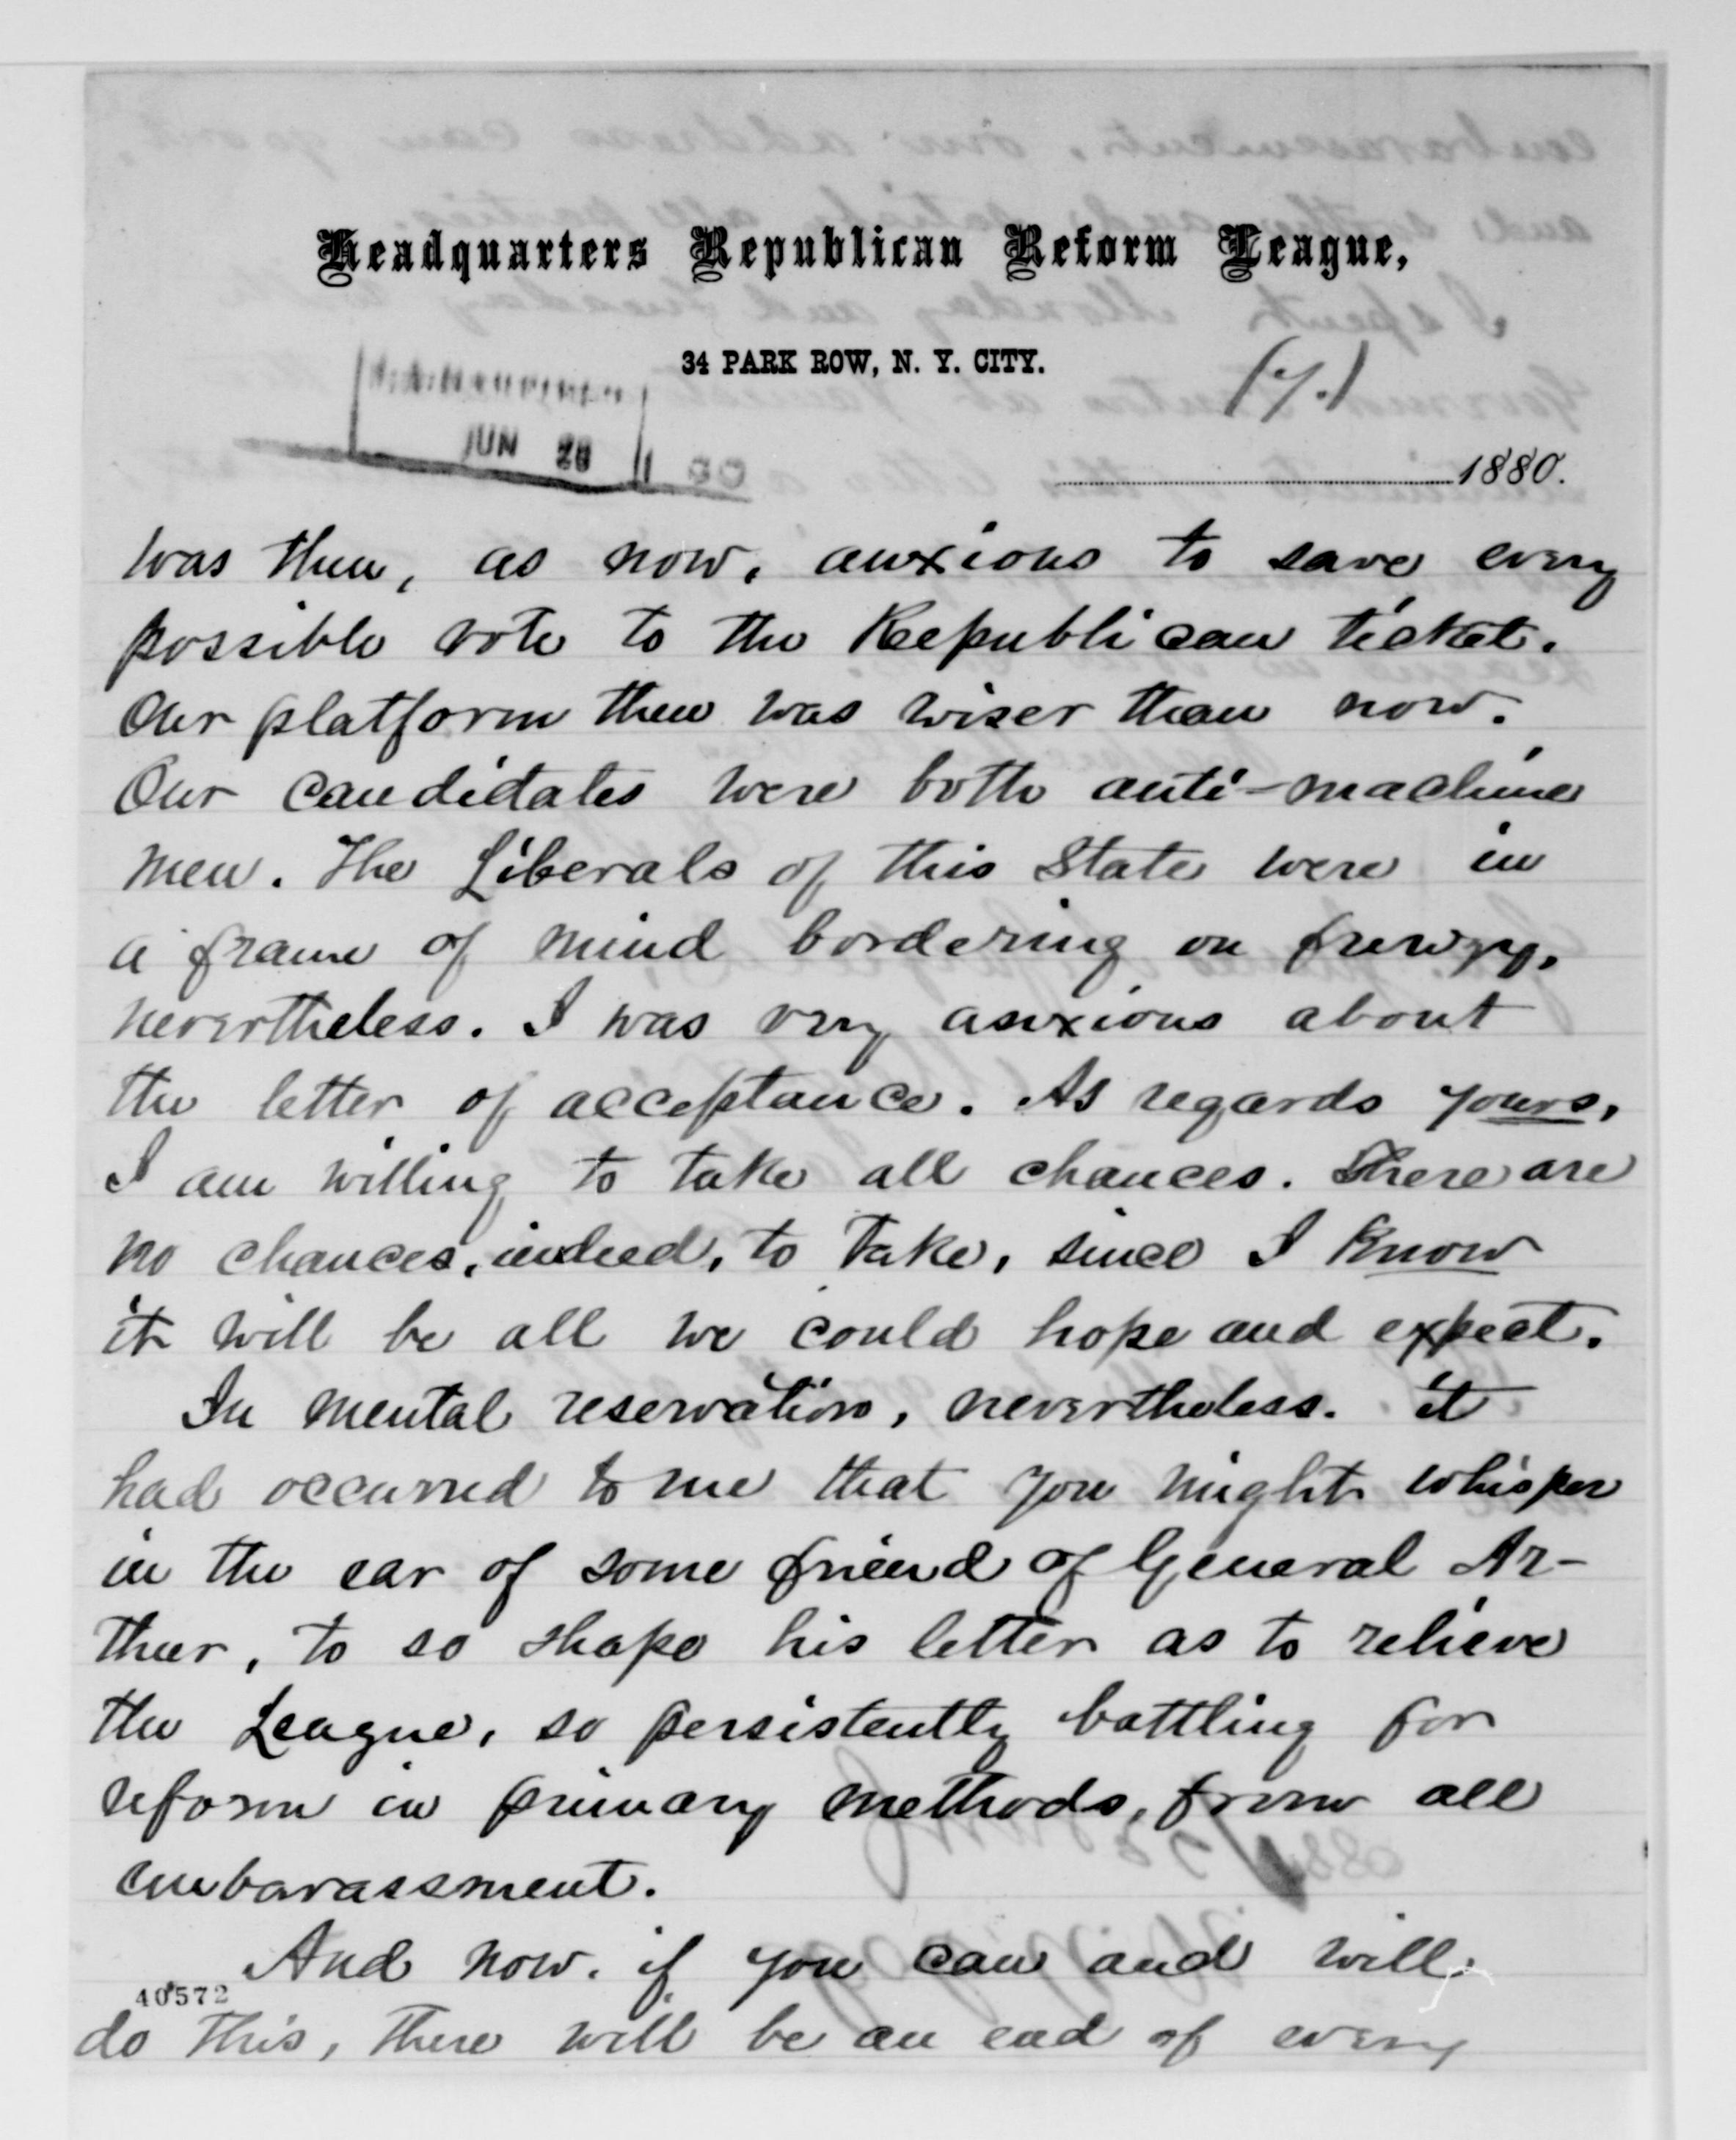 Headquarters Republican Reform League,
34 PARK ROW, N. Y. CITY.
JUN 28
1880.
was then, as now, anxious to save every
possible vote to the Republican ticket.
Our platform then was wiser than now.
Our candidates were both anti-machine
men. The Liberals of this State were in
a frame of mind bordering on frenzy,
nevertheless. I was very anxious about
the letter of acceptance. As regards yours,
I am willing to take all chances. There are
no chances, indeed, to take, since I know
it will be all we could hope and expect.
In mental reservation, nevertheless. it
had occurred to me that you might whisper
in the ear of some friend of General Ar-
thur, to so shape his letter as to relieve
the League, so persistently battling for
reform in primary methods, from all
embarassment.
And now. if you can and will
40572
do this, there will be an end of every